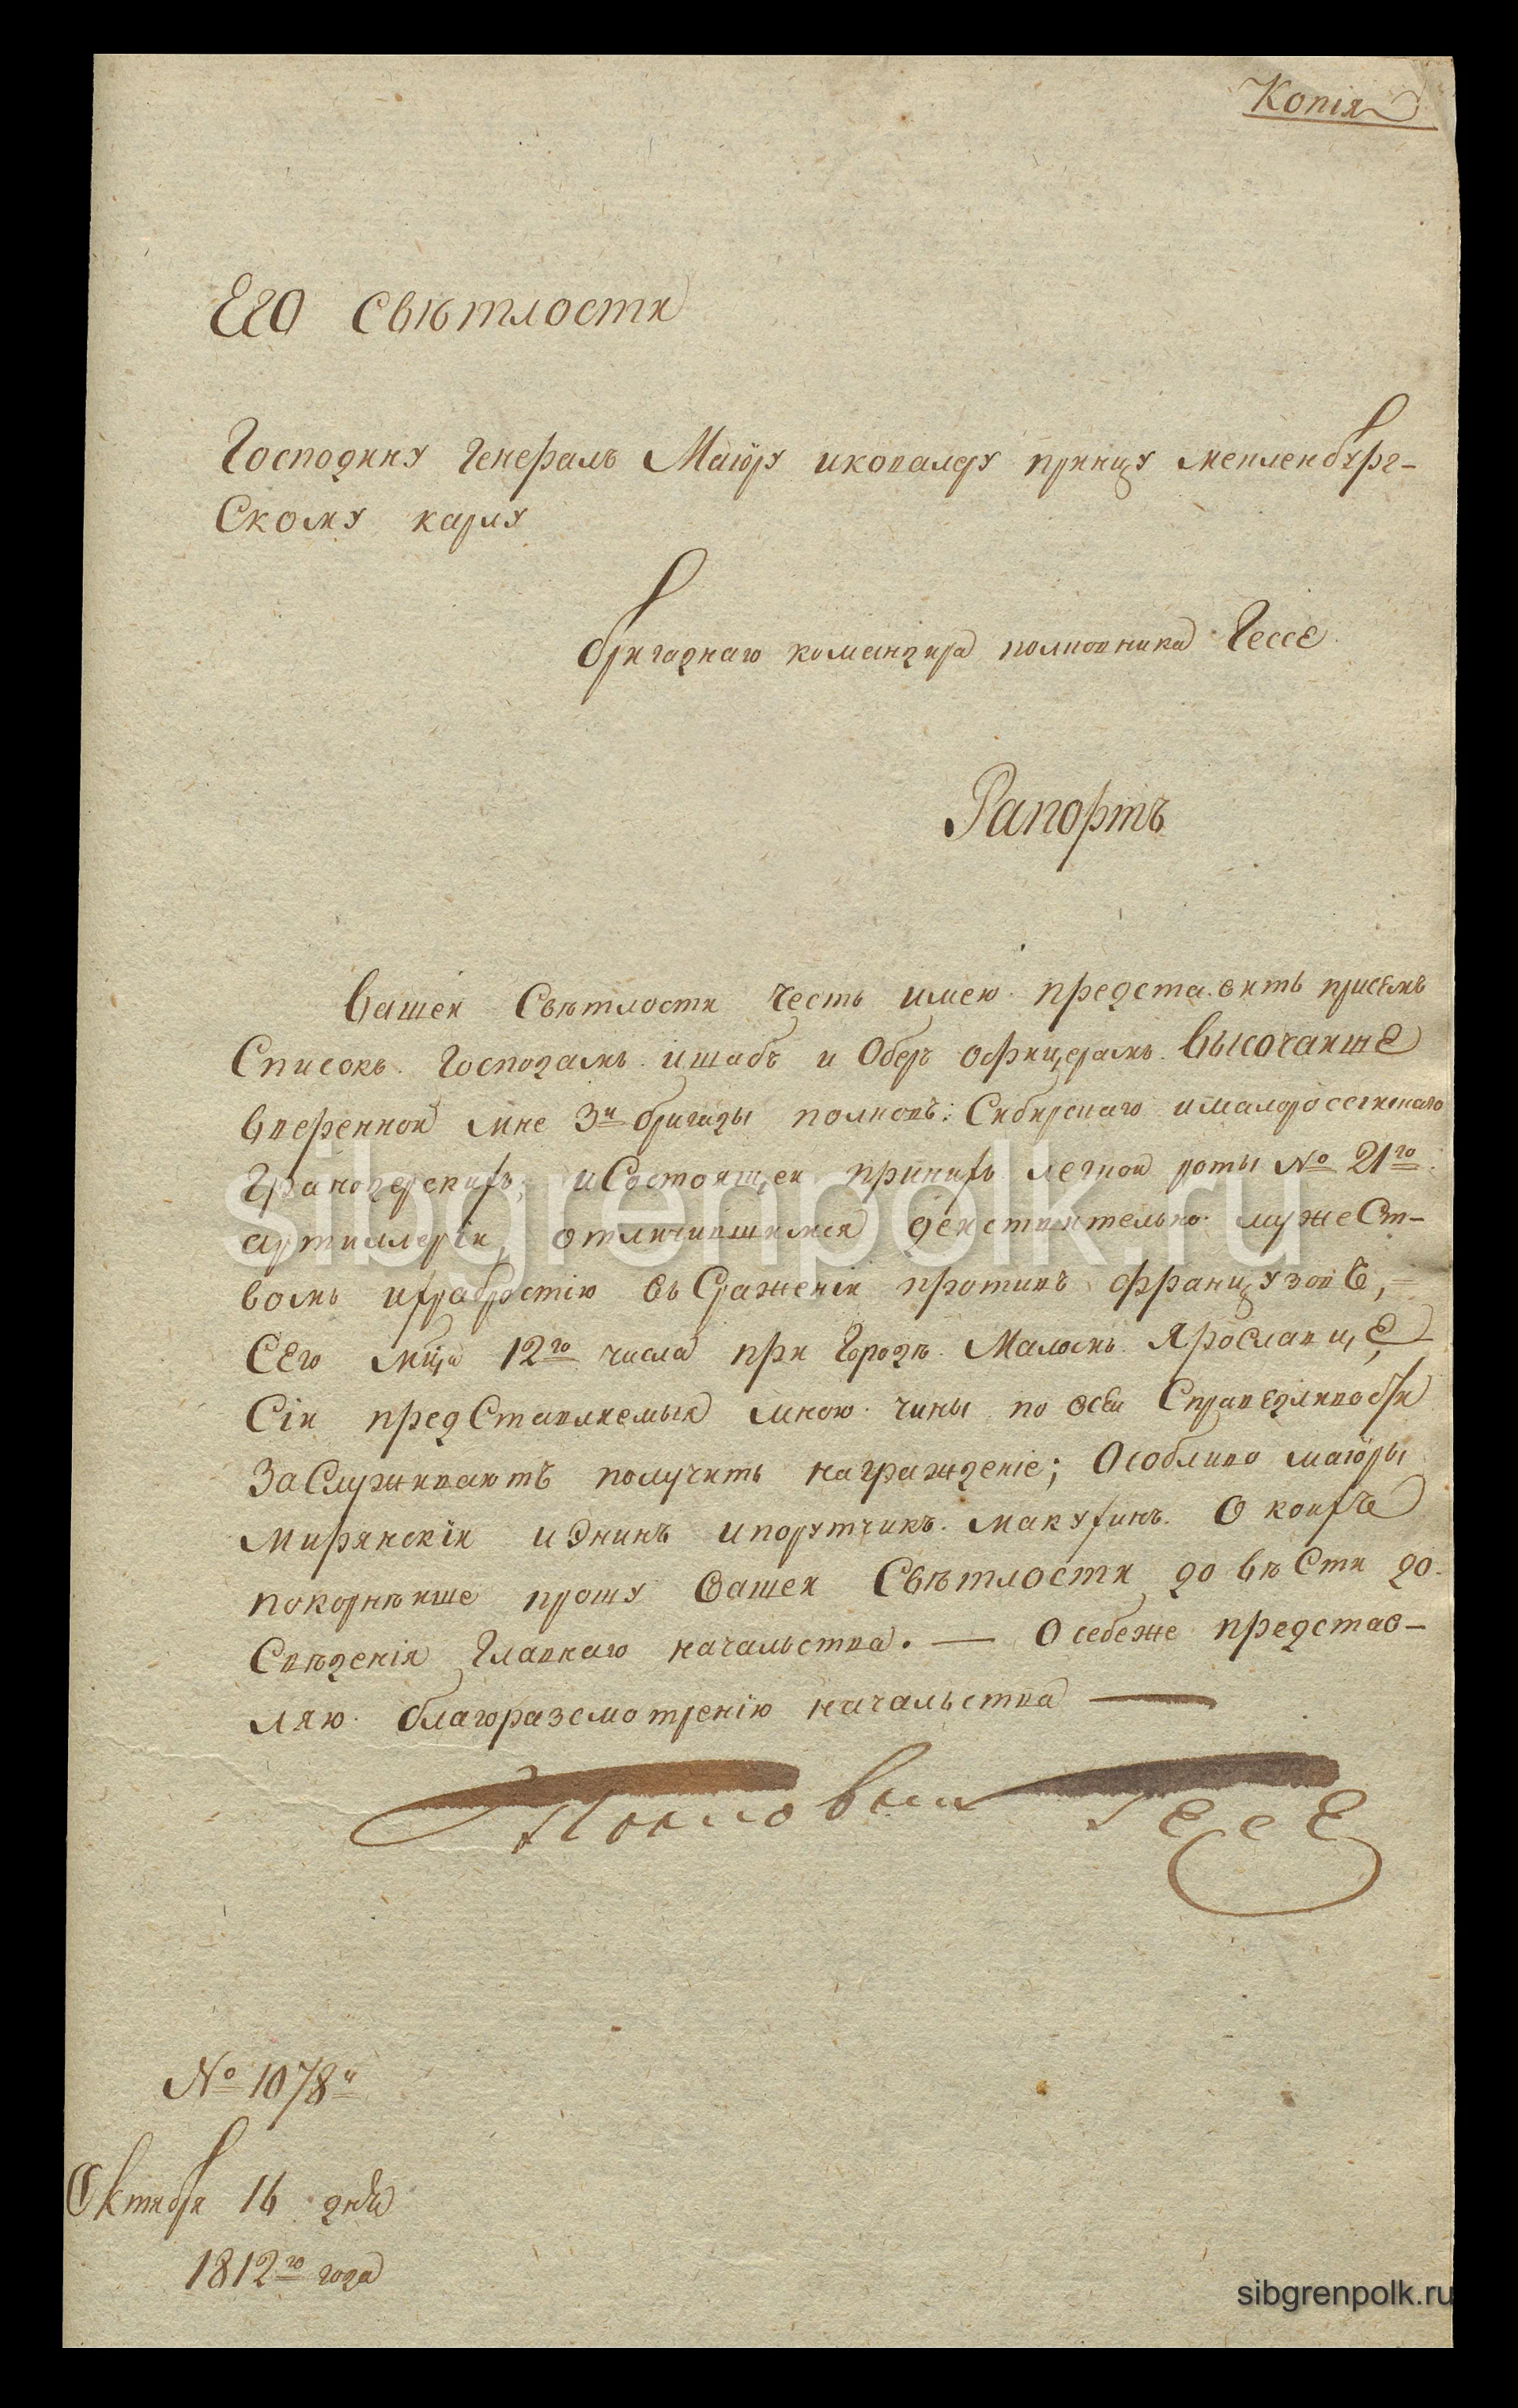 Копія
Его Свѣтлости
Господину Генералъ Маіору икавалеру принцу мекленбург-
Скому карлу
бригаднаго командира полковника Гессе
Рапортъ
Вашей Свѣтлости Честь имею представить присемъ
Списокъ Господамъ штабъ и Оберъ офицерамъ Высочайше
вверенной мне 3й бригады полковъ: Сибирскаго ималоросسійскаго
Гранодерскихъ, иСостоящей приних легкой роты № 21го
артиллеріи, отличившимся действительно мужест-
вомъ ихрабростію въ Сраженіи противъ французовъ,
Сего мца 12го числа при Городѣ Маломъ Ярославце
Сіи представляемыя мною чины по всей Справедливости
Заслуживаютъ получить награжденіе; Особливо маіоры
Мирянскій иЭнинъ ипорутчикъ Макухинъ. О коихъ
покорнѣйше прошу Вашей Свѣтлости довѣсти до
Свѣденія Главнаго начальства. — О себеже представ-
ляю благоразсмотренію начальства —
Полковник Гессе
№ 1078й
Октября 16 дня
1812го года
sibgrenpolk.ru
sibgrenpolk.ru